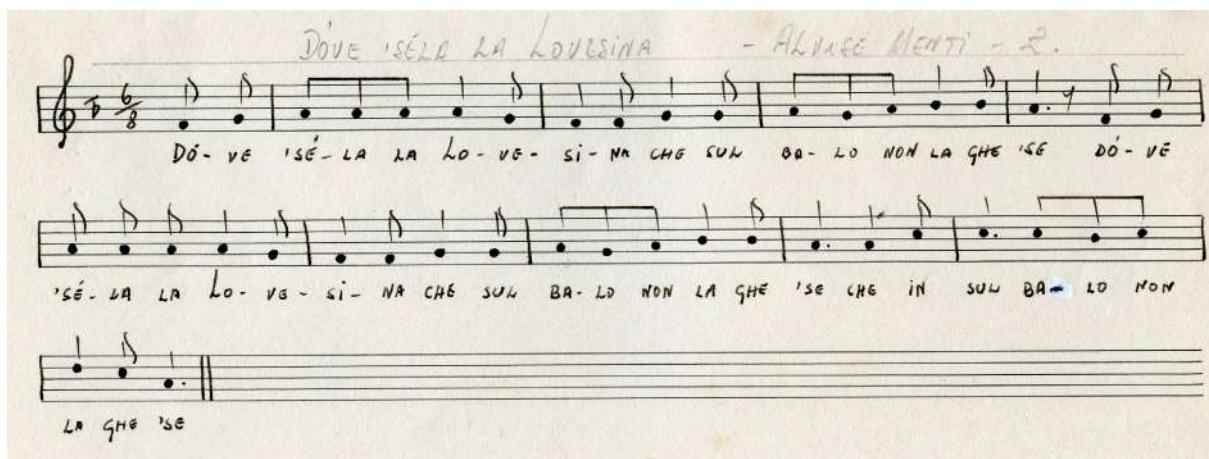 DÓVE 'SÉLA LA LOVESINA - ALVISE MENTI - 2.
6/8
DÓ - VE 'SÉ - LA LA LO - VE - SI - NA CHE SUL BA - LO NON LA GHE 'SE DÓ - VE
'SÉ - LA LA LO - VE - SI - NA CHE SUL BA - LO NON LA GHE 'SE CHE IN SUL BA - LO NON
LA GHE 'SE